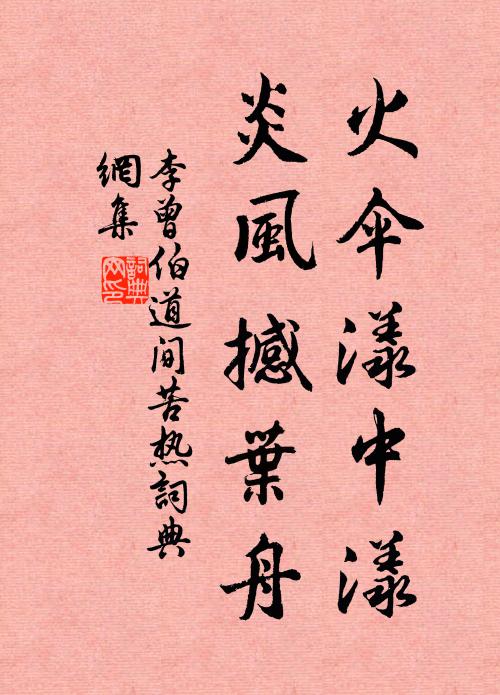 火伞漾中漾
炎風撼葉舟
李曾伯道间苦热詞典
網集
詞典
网印